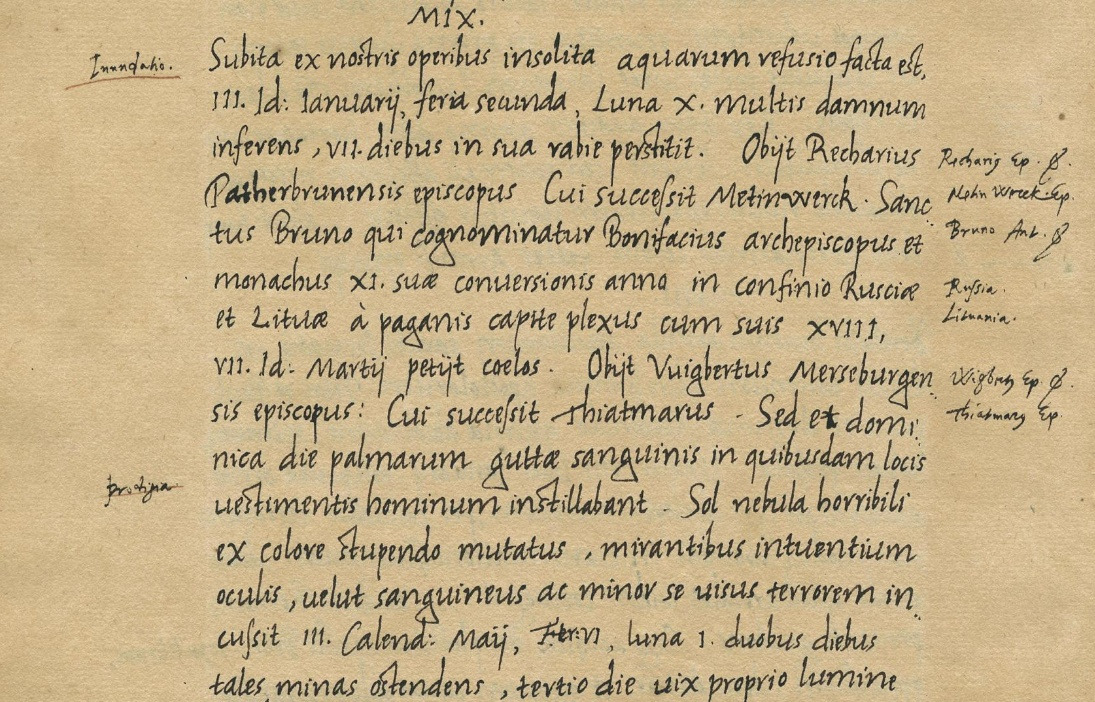 MIX.
Inundatio.
Subita ex nostris operibus insolita aquarum refusio facta est,
III. Id: Ianuarij, feria secunda, Luna X. multis damnum
inferens, VII. diebus in sua rabie perstitit. Obijt Recharius
Recharius Ep.
Patherbrunensis episcopus Cui successit Metinwerck. Sanc
Ep.
tus Bruno qui cognominatur Bonifacius archepiscopus et
Bruno
monachus XI. suæ conversionis anno in confinio Rusciæ
Russia.
et Lituæ à paganis capite plexus cum suis XVIII,
Lituania.
VII. Id: Martij petijt coelos. Obijt Vuigbertus Merseburgen
Wigbertus Ep.
sis episcopus: Cui successit Thiatmarus. Sed et domi
Thiatmarus Ep.
nica die palmarum guttæ sanguinis in quibusdam locis
prodigia
uestimentis hominum instillabant. Sol nebula horribili
ex colore stupendo mutatus, mirantibus intuentium
oculis, uelut sanguineus ac minor se uisus terrorem in
cussit III. Calend: Maij, Fer: VI, luna I. duobus diebus
tales minas ostendens, tertio die uix proprio lumine